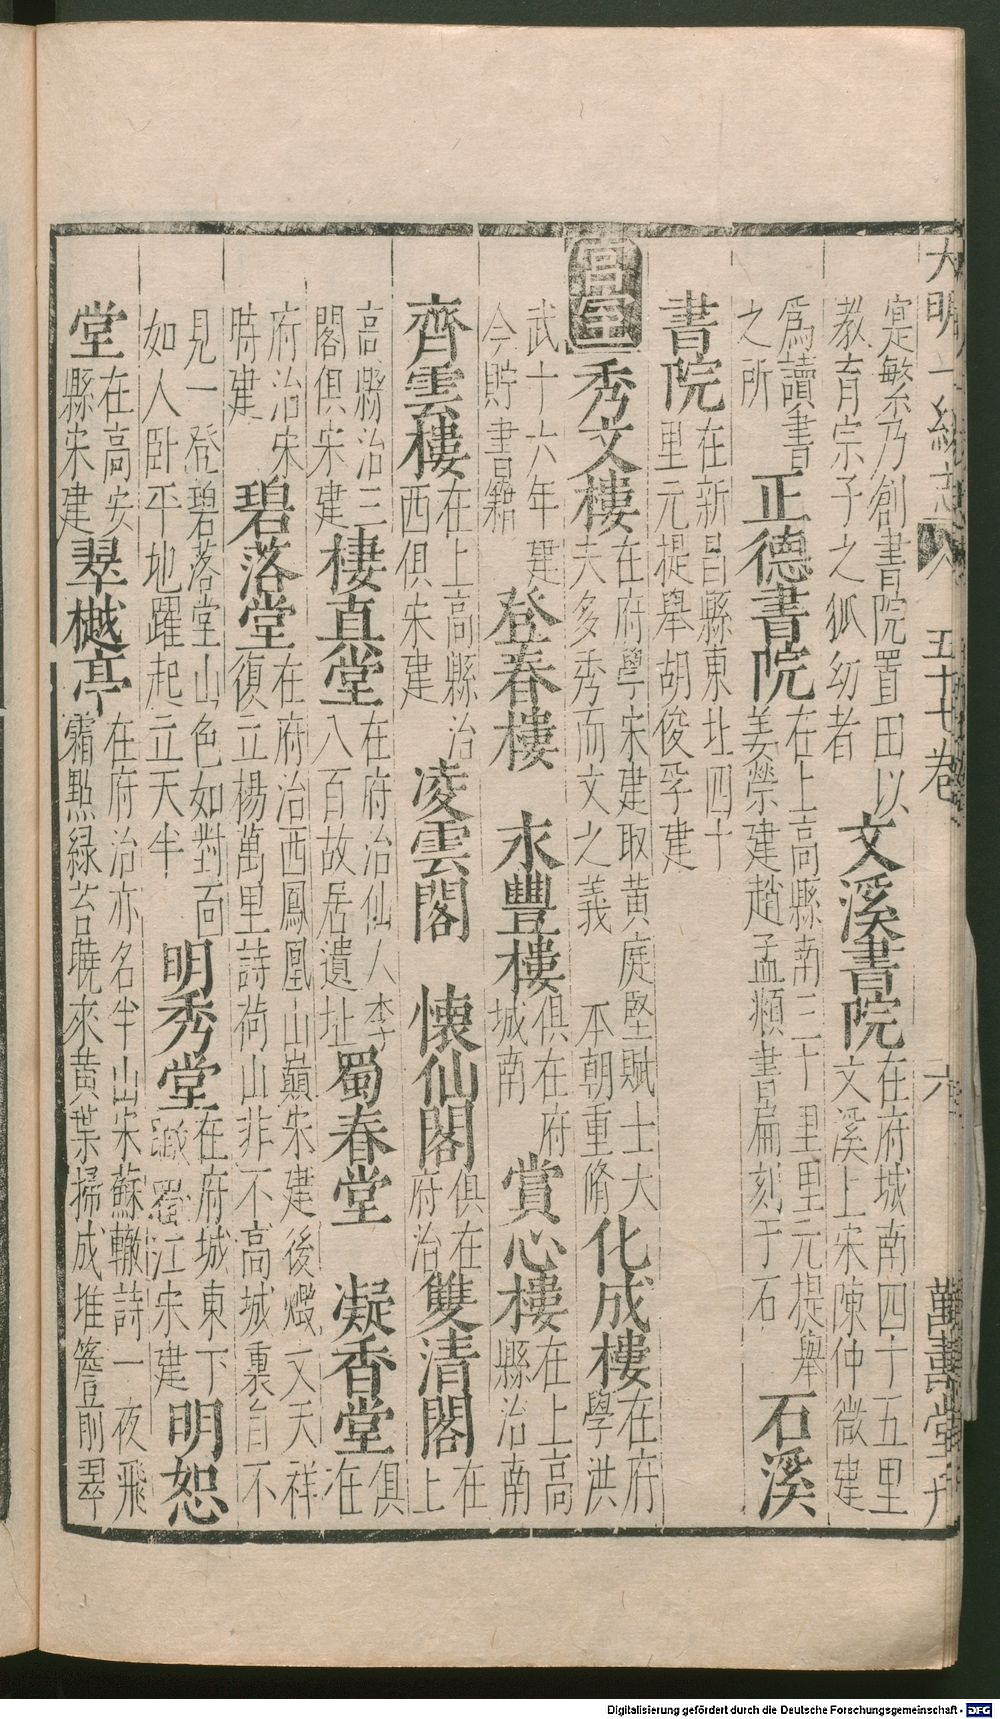 大明一統志 五十七卷 六 萬壽堂刋
寔繁乃創書院置田以
教育宗子之孤幼者
文溪書院
在府城南四十五里
文溪上宋陳仲微建
為讀書
之所
正德書院
在上高縣南三十里元提舉
姜榮建趙孟頫書扁刻于石
石溪
書院
在新昌縣東北四十
里元提舉胡俊孚建
宮室
秀文樓
在府學宋建取黃庭堅賦士大
夫多秀而文之義 本朝重脩
化成樓
在府
學洪
武十六年建
今貯書籍
登春樓 永豐樓
俱在府
城南
賞心樓
在上高
縣治南
齊雲樓
在上高縣治
西俱宋建
凌雲閣 懷仙閣
俱在
府治
雙清閣
在
上
高縣治三
閣俱宋建
棲真堂
在府治仙人李
八百故居遺址
蜀春堂 凝香堂
俱
在
府治宋
時建
碧落堂
在府治西鳳凰山巔宋建後燬文天祥
復立楊萬里詩荷山非不高城裏自不
見一登碧落堂山色如對面
如人卧平地躍起立天半
明秀堂
在府城東下
瞰蜀江宋建
明恕
堂
在高安
縣宋建
翠樾亭
在府治亦名半山宋蘇轍詩一夜飛
霜點緑苔曉來黄葉掃成堆簷前翠
Digitalisierung gefördert durch die Deutsche Forschungsgemeinschaft - DFG